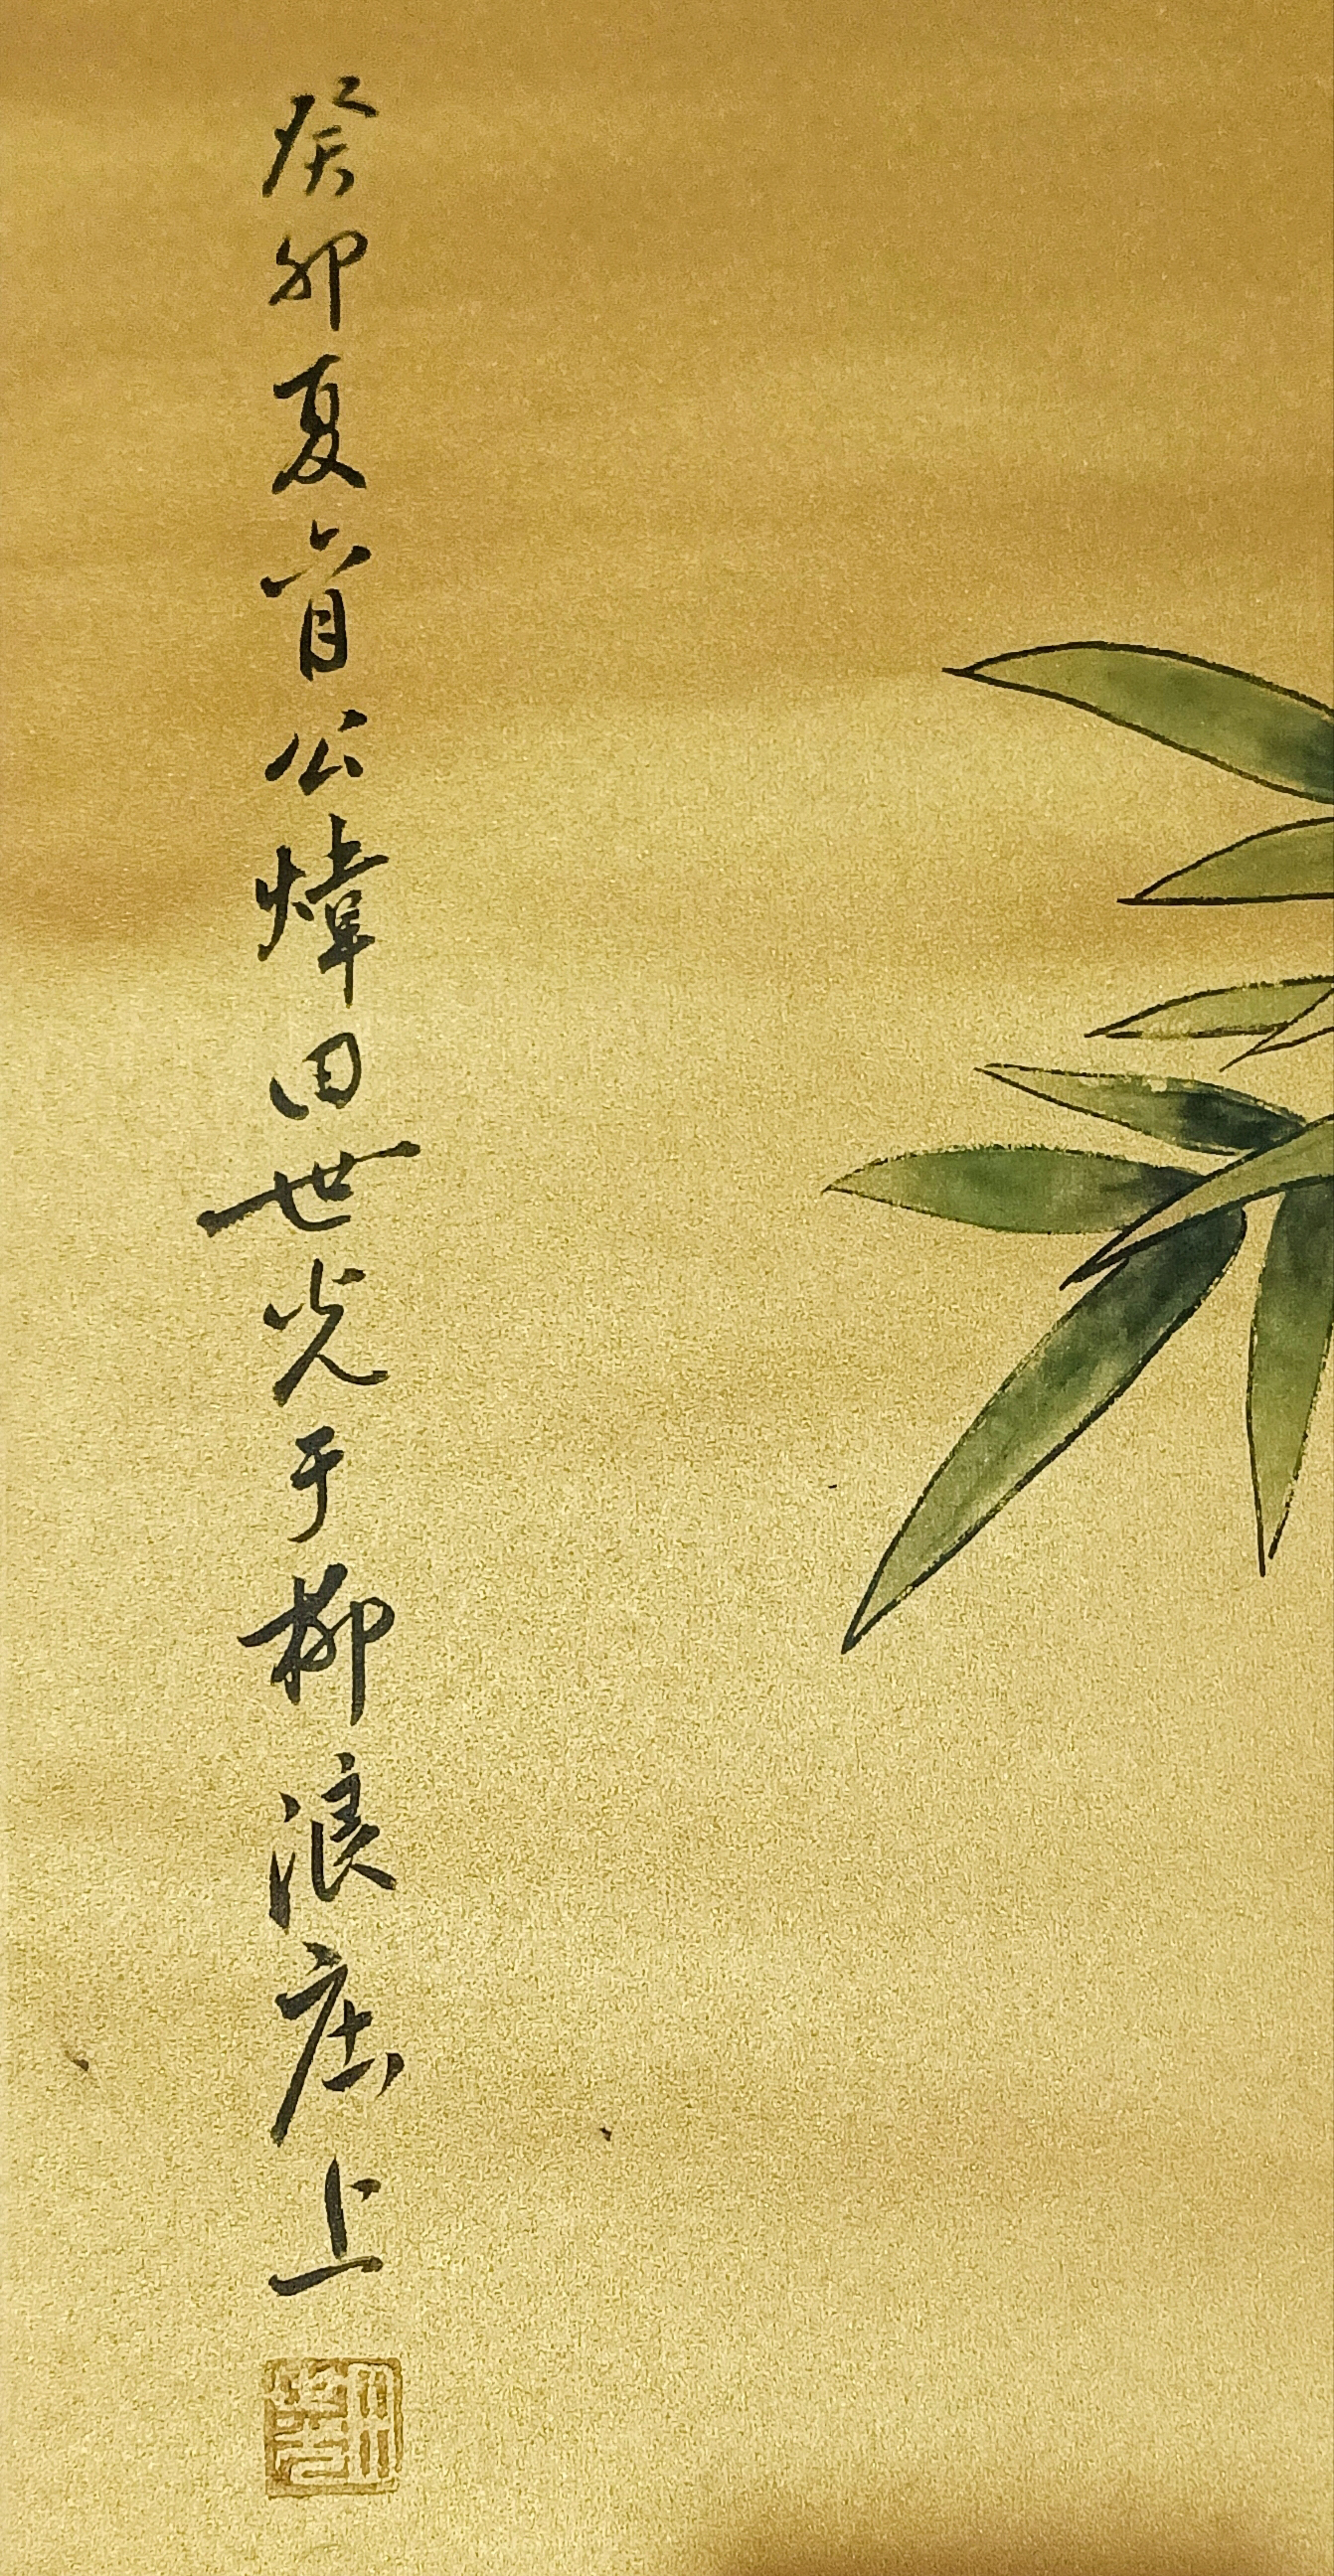 癸卯夏首公炜田世光于柳浪庄上